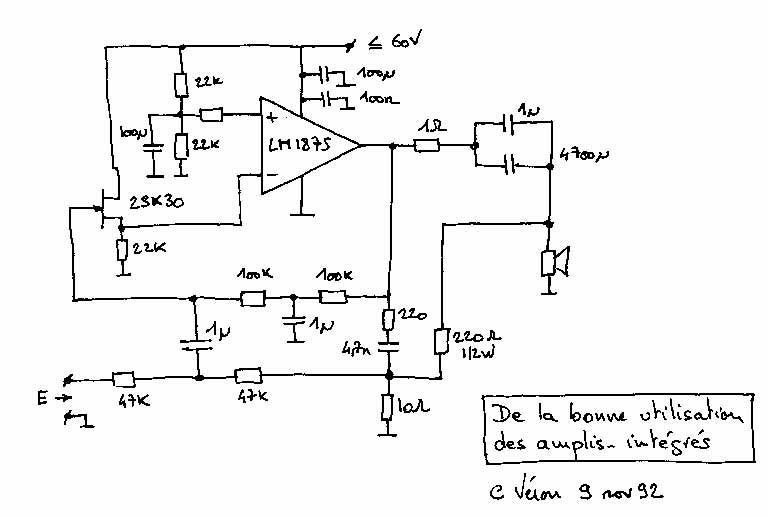 ≤ 60V
22K
100µ
100n
+
1Ω
1µ
100µ
22K
LM1875
4700µ
-
2SK30
22K
100K
100K
220
1µ
1µ
4,7n
220Ω
1/2W
E →
47K
47K
10Ω
De la bonne utilisation
des amplis intégrés
C Véron 9 nov 92